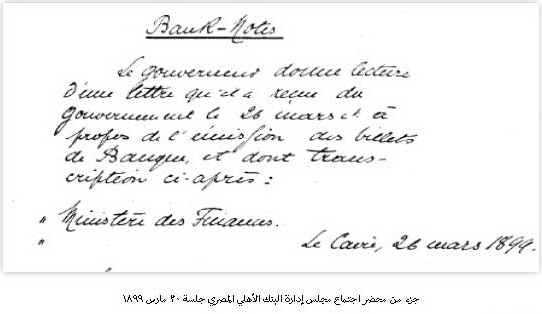 Bank-Notes
Le gouverneur donne lecture
d'une lettre qu'il a reçue du
Gouvernement le 26 mars ct à
propos de l'émission des billets
de Banque, et dont trans-
cription ci-après :
" Ministère des Finances.
"
Le Caire, 26 mars 1899.
جزء من محضر اجتماع مجلس إدارة البنك الأهلي المصري جلسة ٣٠ مارس ١٨٩٩